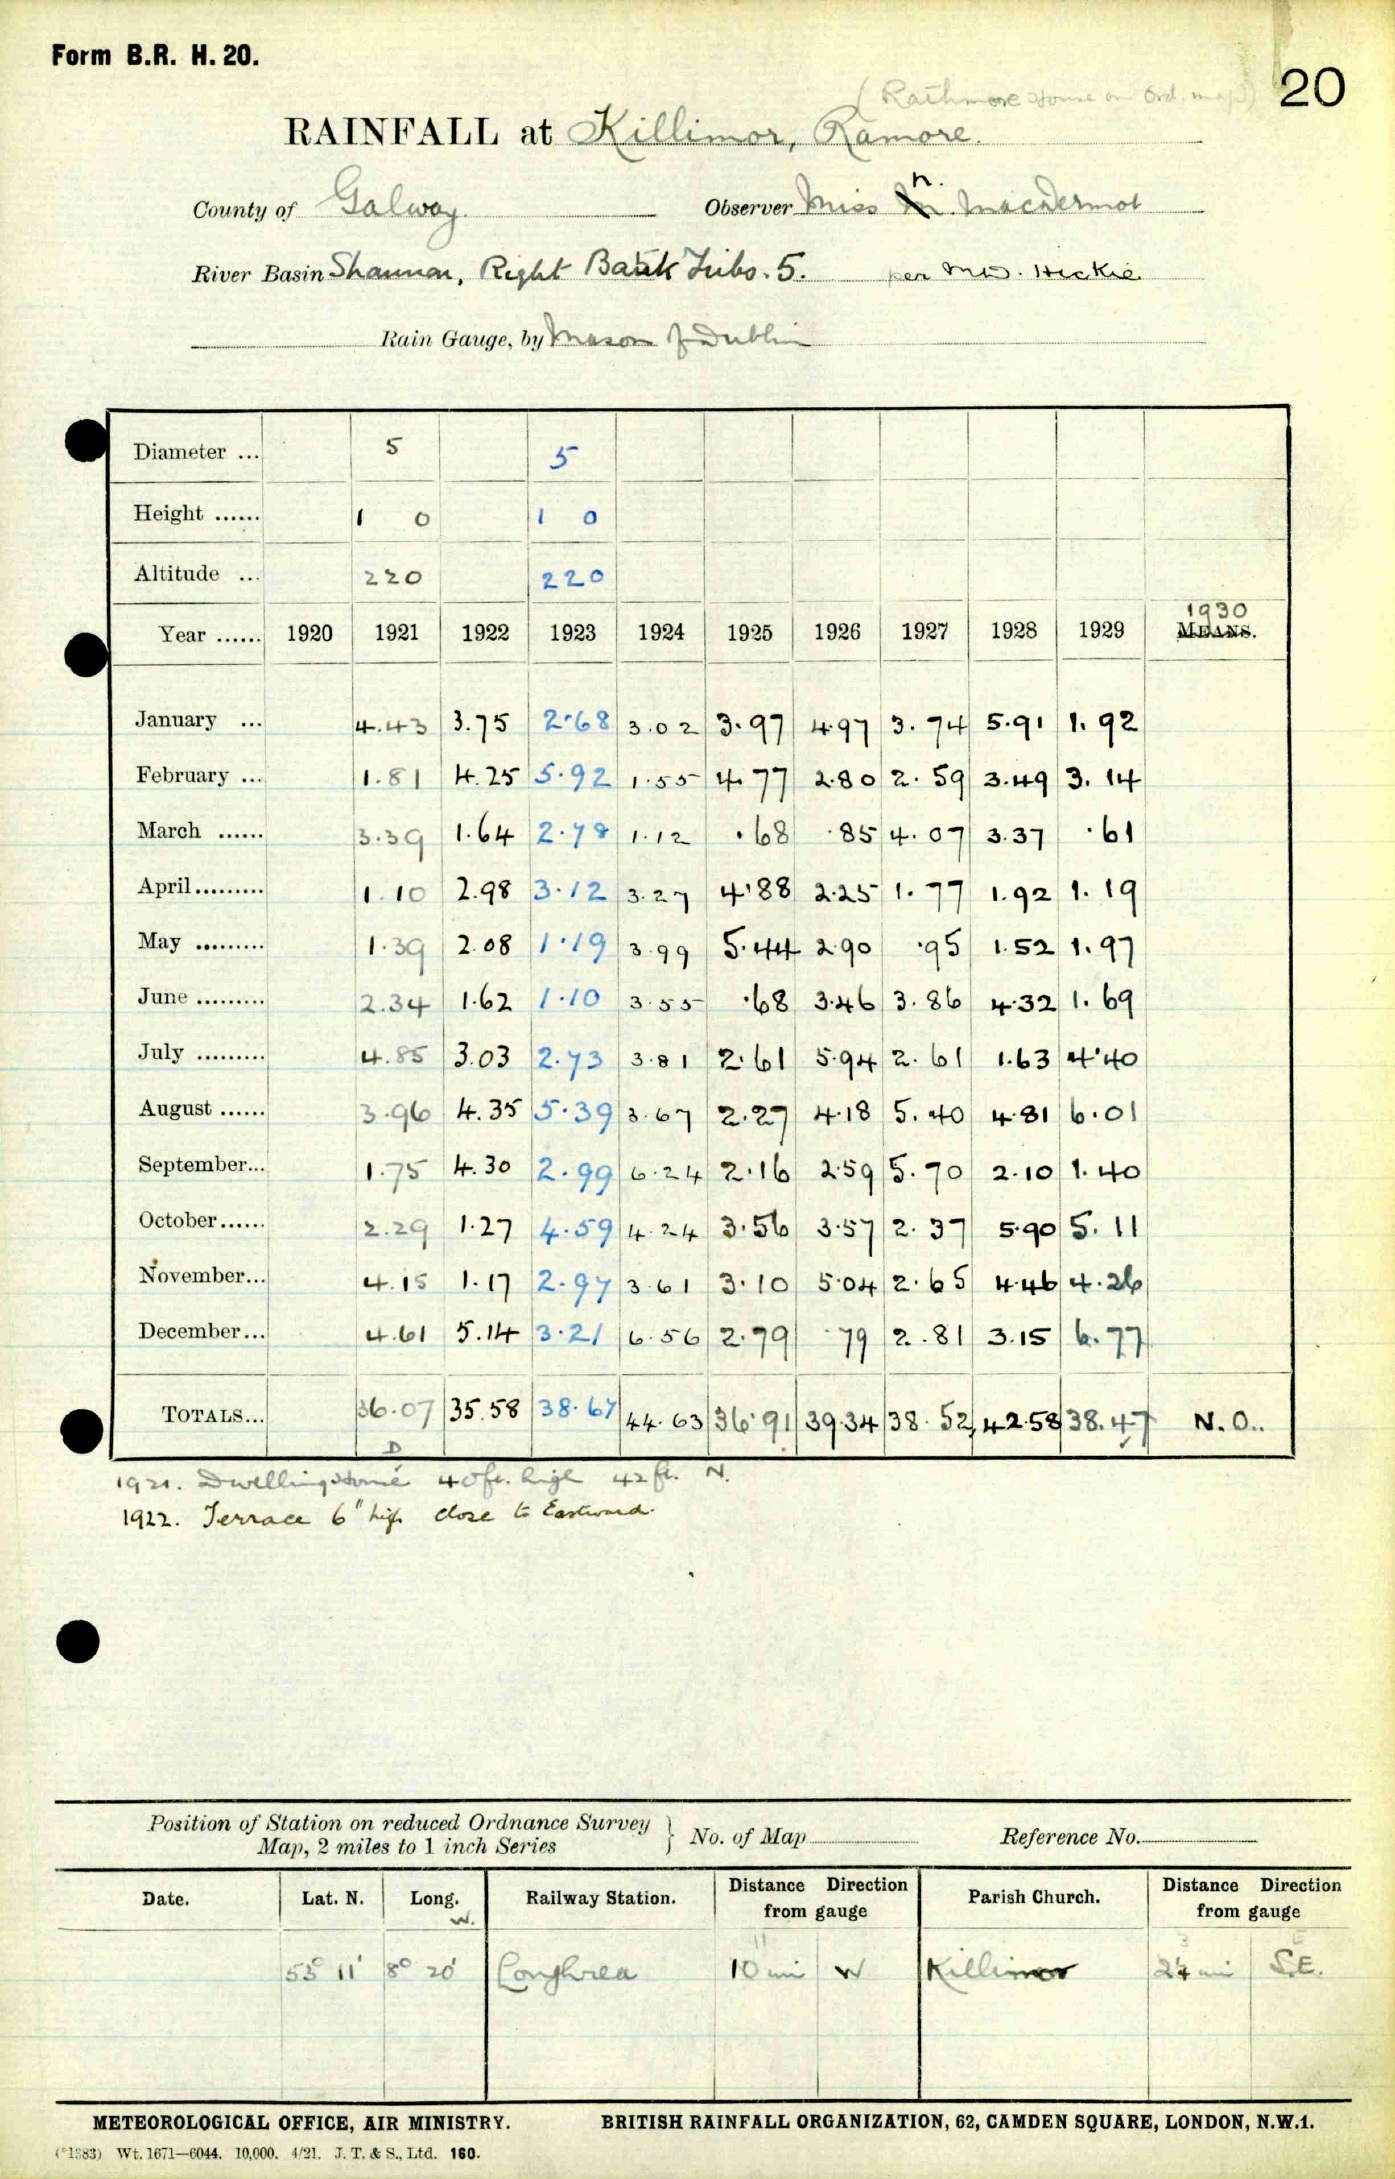 Form B.R. H. 20.
20
(Rathmore House on Ord. map)
RAINFALL at Killimor, Ramore.
County of Galway. Observer Miss N. MacDermot
River Basin Shannon, Right Bank Tribs. 5. per Mrs. Hickie
Rain Gauge, by Mason of Dublin
Diameter ... 5 5
Height ...... 1 0 1 0
Altitude ... 220 220
Year ...... 1920 1921 1922 1923 1924 1925 1926 1927 1928 1929 1930 MEANS.
January ... 4.43 3.75 2.68 3.02 3.97 4.97 3.74 5.91 1.92
February ... 1.81 4.25 5.92 1.55 4.77 2.80 2.59 3.49 3.14
March ...... 3.39 1.64 2.78 1.12 .68 .85 4.07 3.37 .61
April......... 1.10 2.98 3.12 3.27 4.88 2.25 1.77 1.92 1.19
May ......... 1.39 2.08 1.19 3.99 5.44 2.90 .95 1.52 1.97
June ......... 2.34 1.62 1.10 3.55 .68 3.46 3.86 4.32 1.69
July ......... 4.85 3.03 2.73 3.81 2.61 5.94 2.61 1.63 4.40
August ...... 3.96 4.35 5.39 3.67 2.27 4.18 5.40 4.81 6.01
September... 1.75 4.30 2.99 6.24 2.16 2.59 5.70 2.10 1.40
October...... 2.29 1.27 4.59 4.24 3.56 3.57 2.37 5.90 5.11
November... 4.15 1.17 2.97 3.61 3.10 5.04 2.65 4.46 4.26
December... 4.61 5.14 3.21 6.56 2.79 .79 2.81 3.15 6.77
TOTALS... 36.07 35.58 38.67 44.63 36.91 39.34 38.52 42.58 38.47 N.O..
D
1921. Dwelling House 40ft. high 42ft. N.
1922. Terrace 6" high close to Eastward.
Position of Station on reduced Ordnance Survey
Map, 2 miles to 1 inch Series } No. of Map Reference No.
Date. Lat. N. Long. W. Railway Station. Distance Direction from gauge Parish Church. Distance Direction from gauge
53° 11' 8° 20' Loughrea 10 mi W Killimor 2¼ mi S.E.
METEOROLOGICAL OFFICE, AIR MINISTRY. BRITISH RAINFALL ORGANIZATION, 62, CAMDEN SQUARE, LONDON, N.W.1.
(*1383) Wt. 1671—6044. 10,000. 4/21. J. T. & S., Ltd. 160.